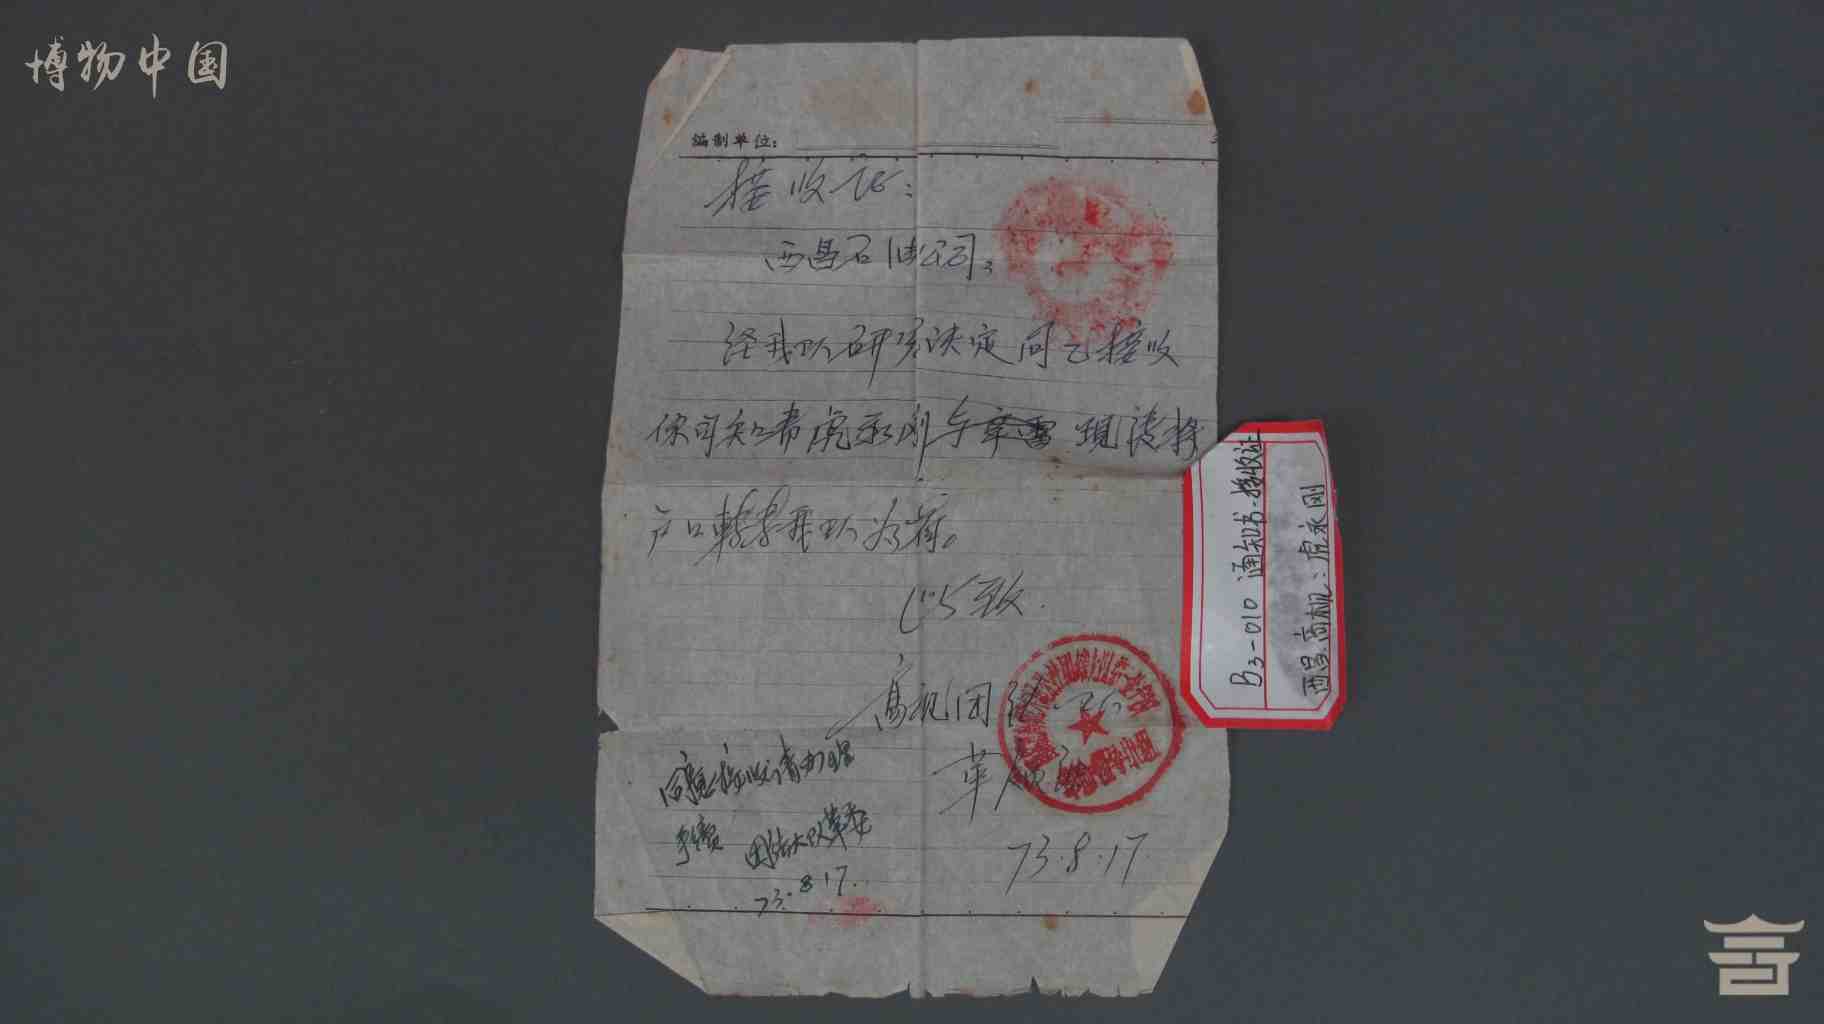 博物中国
编制单位：
接收证：
西昌石油公司：
经我队研究决定同意接收
你司知青虎永刚 现请将
户口转来我队为荷。
此致
高枧团结
革
73.8.17
同意接收请办理
手续 团结大队革委
73.8.17.
B3-010 通知书·接收证
西昌.高枧：虎永刚